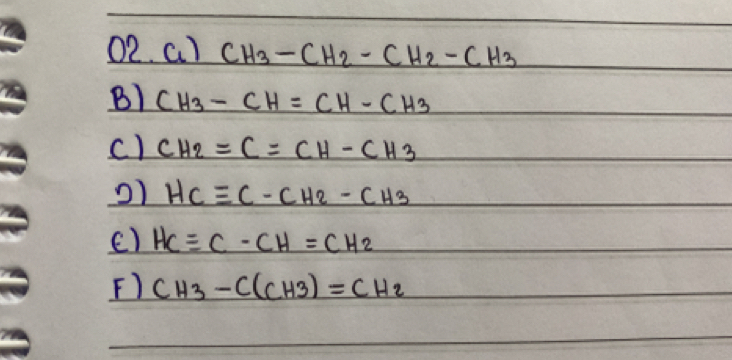 02. a) CH3 - CH2 - CH2 - CH3
B) CH3 - CH = CH - CH3
C) CH2 = C = CH - CH3
D) HC ≡ C - CH2 - CH3
E) HC ≡ C - CH = CH2
F) CH3 - C(CH3) = CH2